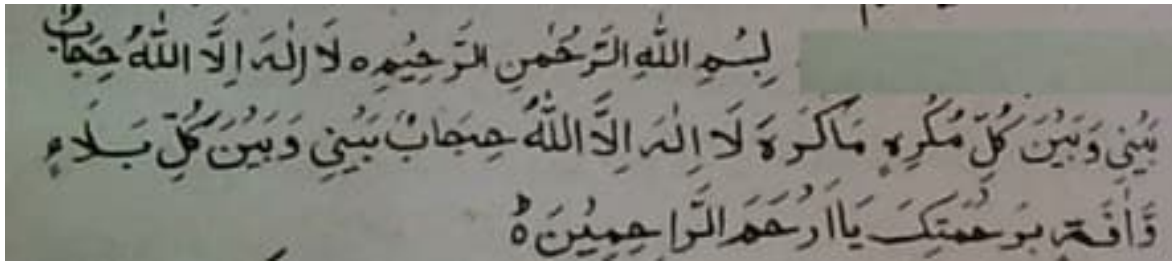 بِسْمِ اللهِ الرَّحْمٰنِ الرَّحِيْمِ ه لَا اِلٰهَ اِلَّا اللهُ حِجَابٌ
بَيْنِي وَبَيْنَ كُلِّ مُكْرِهٍ مَاكَرَهَ لَا اِلٰهَ اِلَّا اللهُ حِجَابٌ بَيْنِي وَبَيْنَ كُلِّ بَلَاءٍ
وَّاٰفَةٍ بِرَحْمَتِكَ يَا اَرْحَمَ الرَّاحِمِيْنَ ه